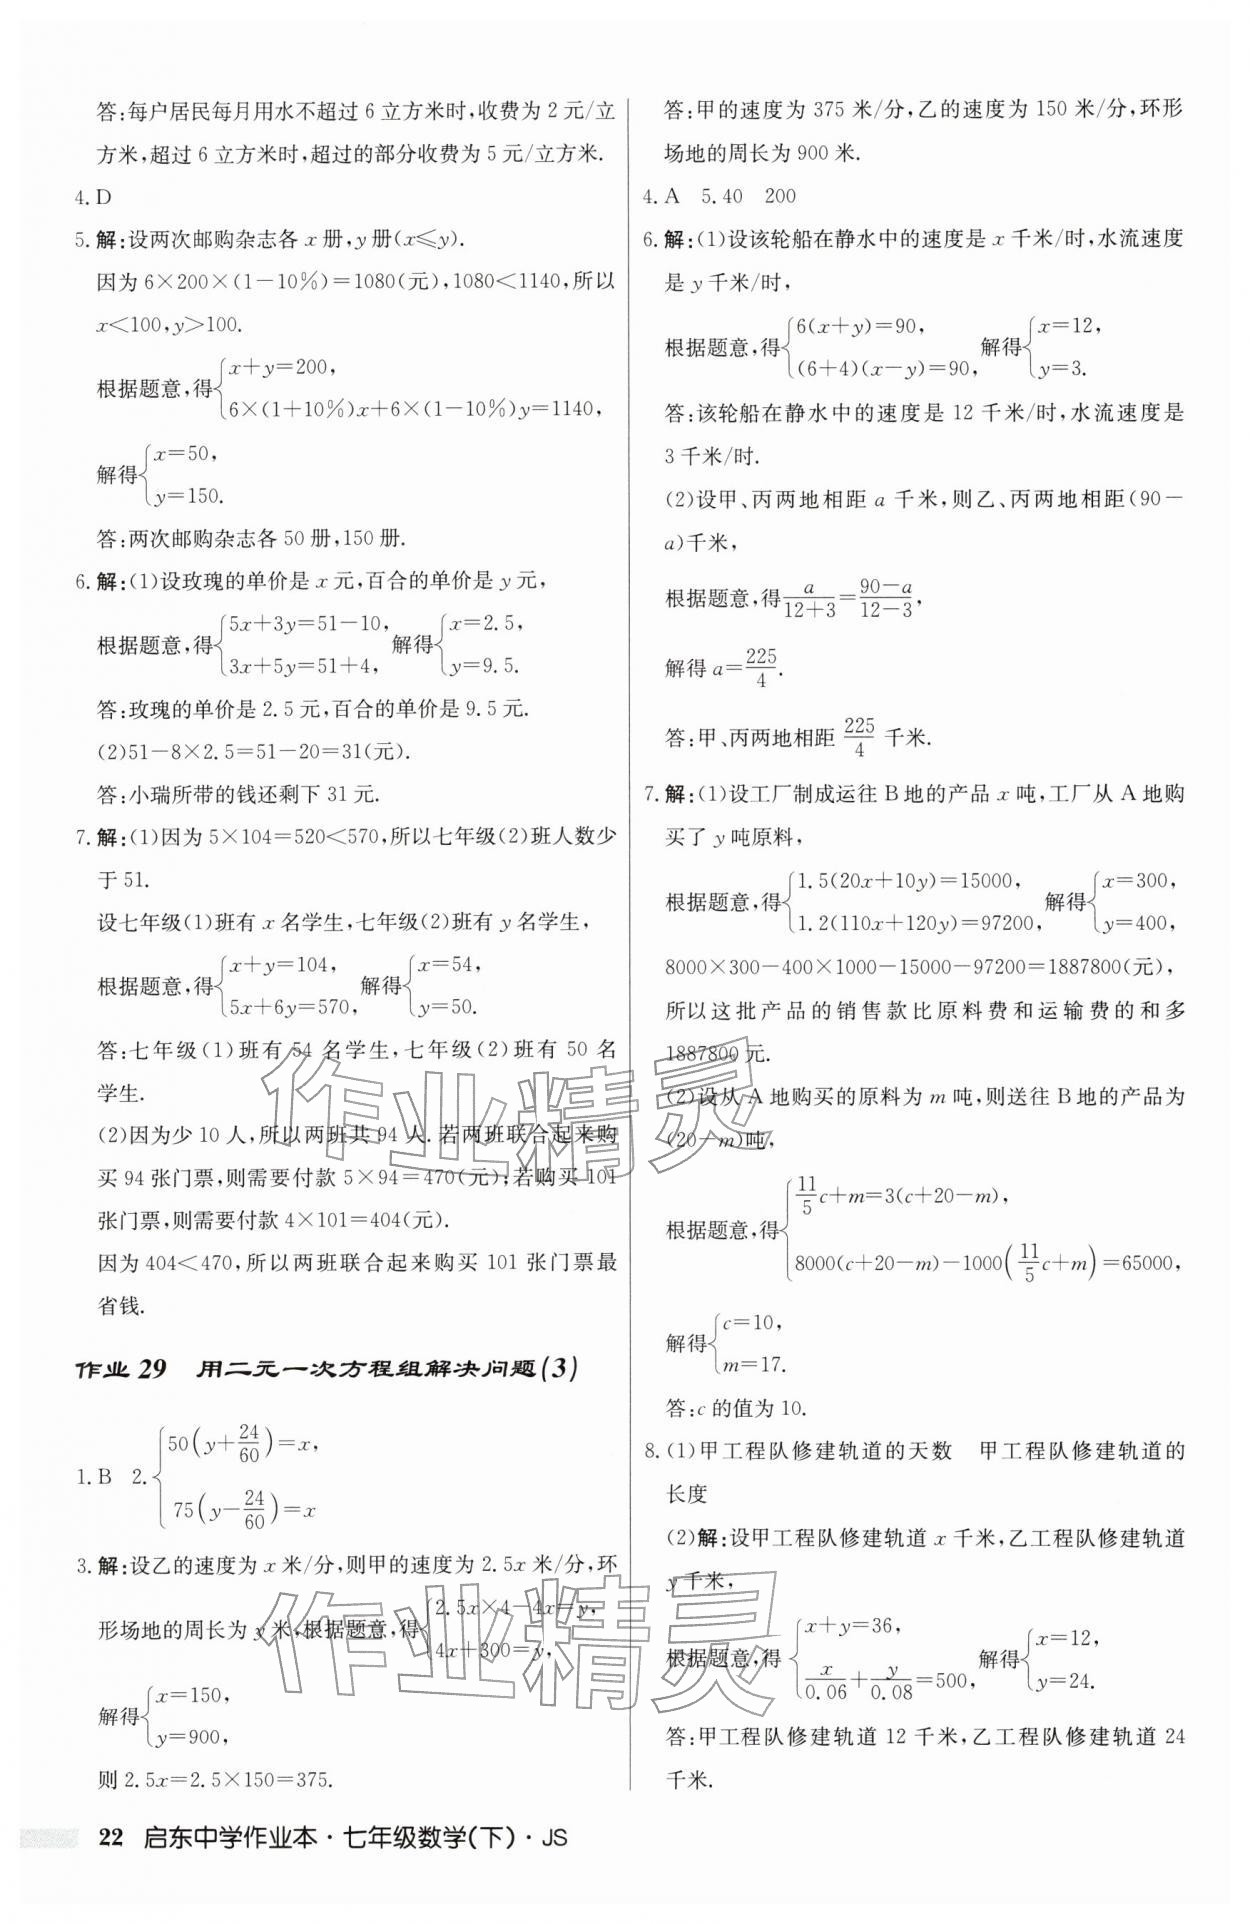 答:每户居民每月用水不超过6立方米时,收费为2元/立
方米,超过6立方米时,超过的部分收费为5元/立方米.
4. D
5. 解:设两次邮购杂志各x册,y册(x≤y).
因为6×200×(1-10%)=1080(元),1080<1140,所以
x<100,y>100.
根据题意,得{x+y=200,
6×(1+10%)x+6×(1-10%)y=1140,
解得{x=50,
y=150.
答:两次邮购杂志各50册,150册.
6. 解:(1)设玫瑰的单价是x元,百合的单价是y元,
根据题意,得{5x+3y=51-10, 解得{x=2.5,
3x+5y=51+4, y=9.5.
答:玫瑰的单价是2.5元,百合的单价是9.5元.
(2)51-8×2.5=51-20=31(元).
答:小瑞所带的钱还剩下31元.
7. 解:(1)因为5×104=520<570,所以七年级(2)班人数少
于51.
设七年级(1)班有x名学生,七年级(2)班有y名学生,
根据题意,得{x+y=104, 解得{x=54,
5x+6y=570, y=50.
答:七年级(1)班有54名学生,七年级(2)班有50名
学生.
(2)因为少10人,所以两班共94人.若两班联合起来购
买94张门票,则需要付款5×94=470(元);若购买101
张门票,则需要付款4×101=404(元).
因为404<470,所以两班联合起来购买101张门票最
省钱.
作业29 用二元一次方程组解决问题(3)
1. B 2. {50(y+24/60)=x,
75(y-24/60)=x
3. 解:设乙的速度为x米/分,则甲的速度为2.5x米/分,环
形场地的周长为y米,根据题意,得{2.5x×4-4x=y,
4x+300=y,
解得{x=150,
y=900,
则2.5x=2.5×150=375.
答:甲的速度为375米/分,乙的速度为150米/分,环形
场地的周长为900米.
4. A 5. 40 200
6. 解:(1)设该轮船在静水中的速度是x千米/时,水流速度
是y千米/时,
根据题意,得{6(x+y)=90, 解得{x=12,
(6+4)(x-y)=90, y=3.
答:该轮船在静水中的速度是12千米/时,水流速度是
3千米/时.
(2)设甲、丙两地相距a千米,则乙、丙两地相距(90-
a)千米,
根据题意,得a/(12+3)=(90-a)/(12-3),
解得a=225/4.
答:甲、丙两地相距225/4千米.
7. 解:(1)设工厂制成运往B地的产品x吨,工厂从A地购
买了y吨原料,
根据题意,得{1.5(20x+10y)=15000, 解得{x=300,
1.2(110x+120y)=97200, y=400,
8000×300-400×1000-15000-97200=1887800(元),
所以这批产品的销售款比原料费和运输费的和多
1887800元.
(2)设从A地购买的原料为m吨,则送往B地的产品为
(20-m)吨,
根据题意,得{11/5c+m=3(c+20-m),
8000(c+20-m)-1000(11/5c+m)=65000,
解得{c=10,
m=17.
答:c的值为10.
8. (1)甲工程队修建轨道的天数 甲工程队修建轨道的
长度
(2)解:设甲工程队修建轨道x千米,乙工程队修建轨道
y千米,
根据题意,得{x+y=36, 解得{x=12,
x/0.06+y/0.08=500, y=24.
答:甲工程队修建轨道12千米,乙工程队修建轨道24
千米.
作业精灵
作业精灵
22 启东中学作业本·七年级数学(下)·JS